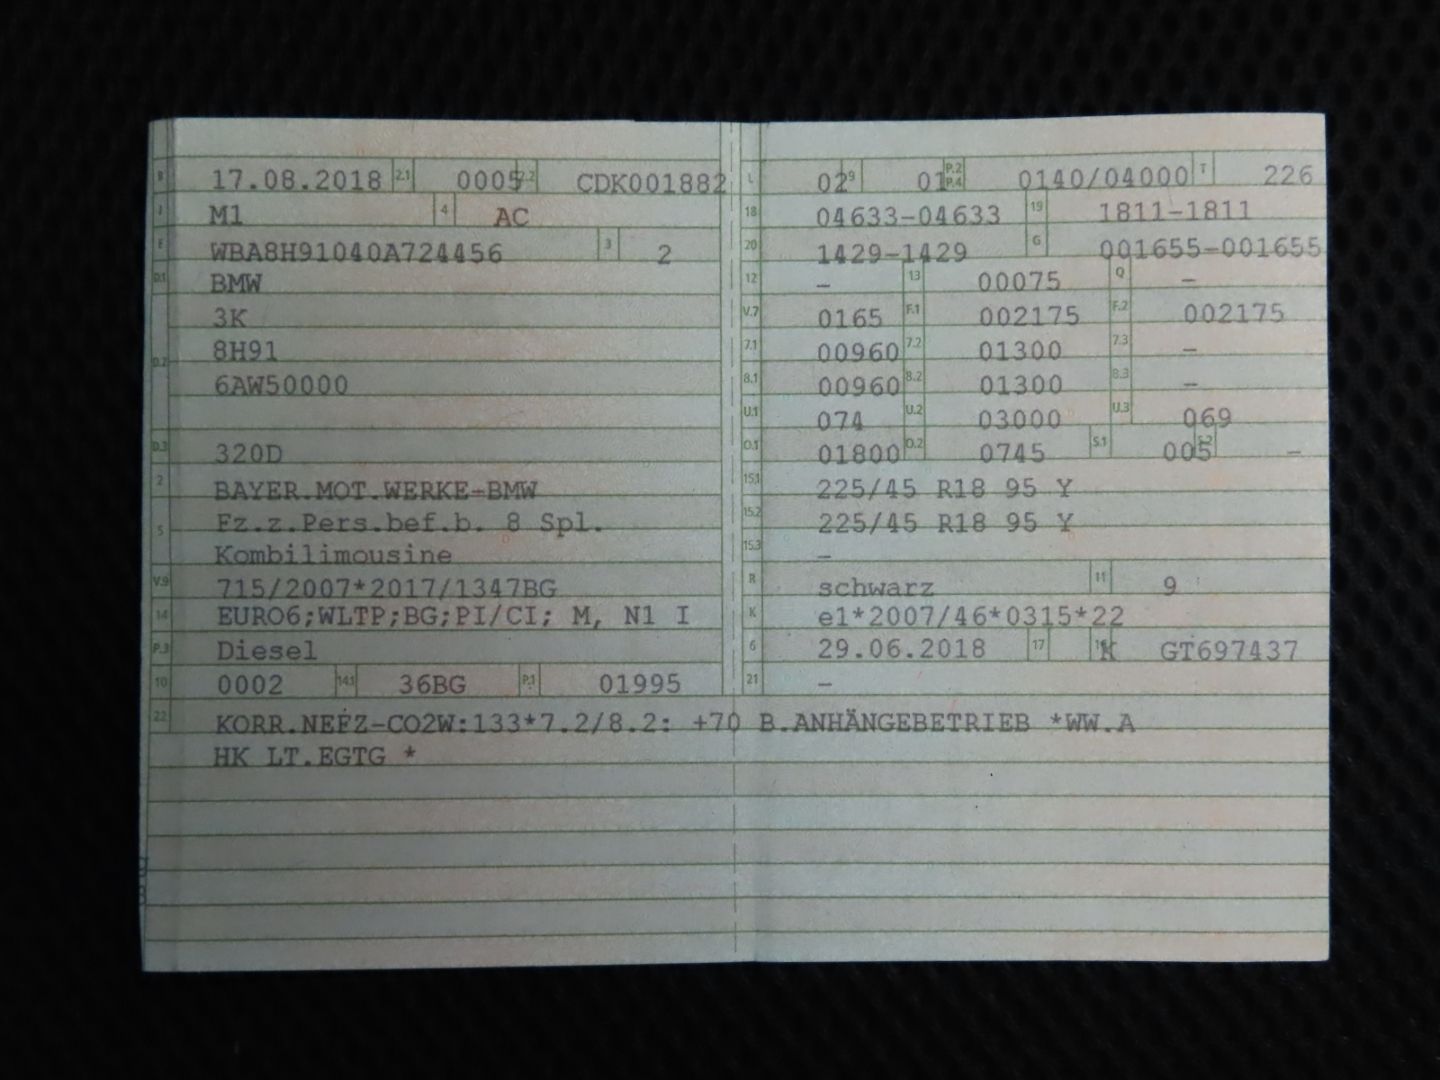 B 17.08.2018 2.1 0005 2.2 CDK001882
J M1 4 AC
E WBA8H91040A724456 3 2
D.1 BMW
3K
D.2 8H91
6AW50000
D.3 320D
2 BAYER.MOT.WERKE-BMW
5 Fz.z.Pers.bef.b. 8 Spl.
Kombilimousine
V.9 715/2007*2017/1347BG
14 EURO6;WLTP;BG;PI/CI; M, N1 I
P.3 Diesel
10 0002 14.1 36BG P.1 01995
L 02 9 01 P.2 P.4 0140/04000 T 226
18 04633-04633 19 1811-1811
20 1429-1429 G 001655-001655
12 – 13 00075 Q –
V.7 0165 F.1 002175 F.2 002175
7.1 00960 7.2 01300 7.3 –
8.1 00960 8.2 01300 8.3 –
U.1 074 U.2 03000 U.3 069
O.1 01800 O.2 0745 S.1 005 S.2 –
15.1 225/45 R18 95 Y
15.2 225/45 R18 95 Y
15.3 –
R schwarz 11 9
K e1*2007/46*0315*22
6 29.06.2018 17 K 16 GT697437
21 –
22 KORR.NEFZ-CO2W:133*7.2/8.2: +70 B.ANHÄNGEBETRIEB *WW.A
HK LT.EGTG *